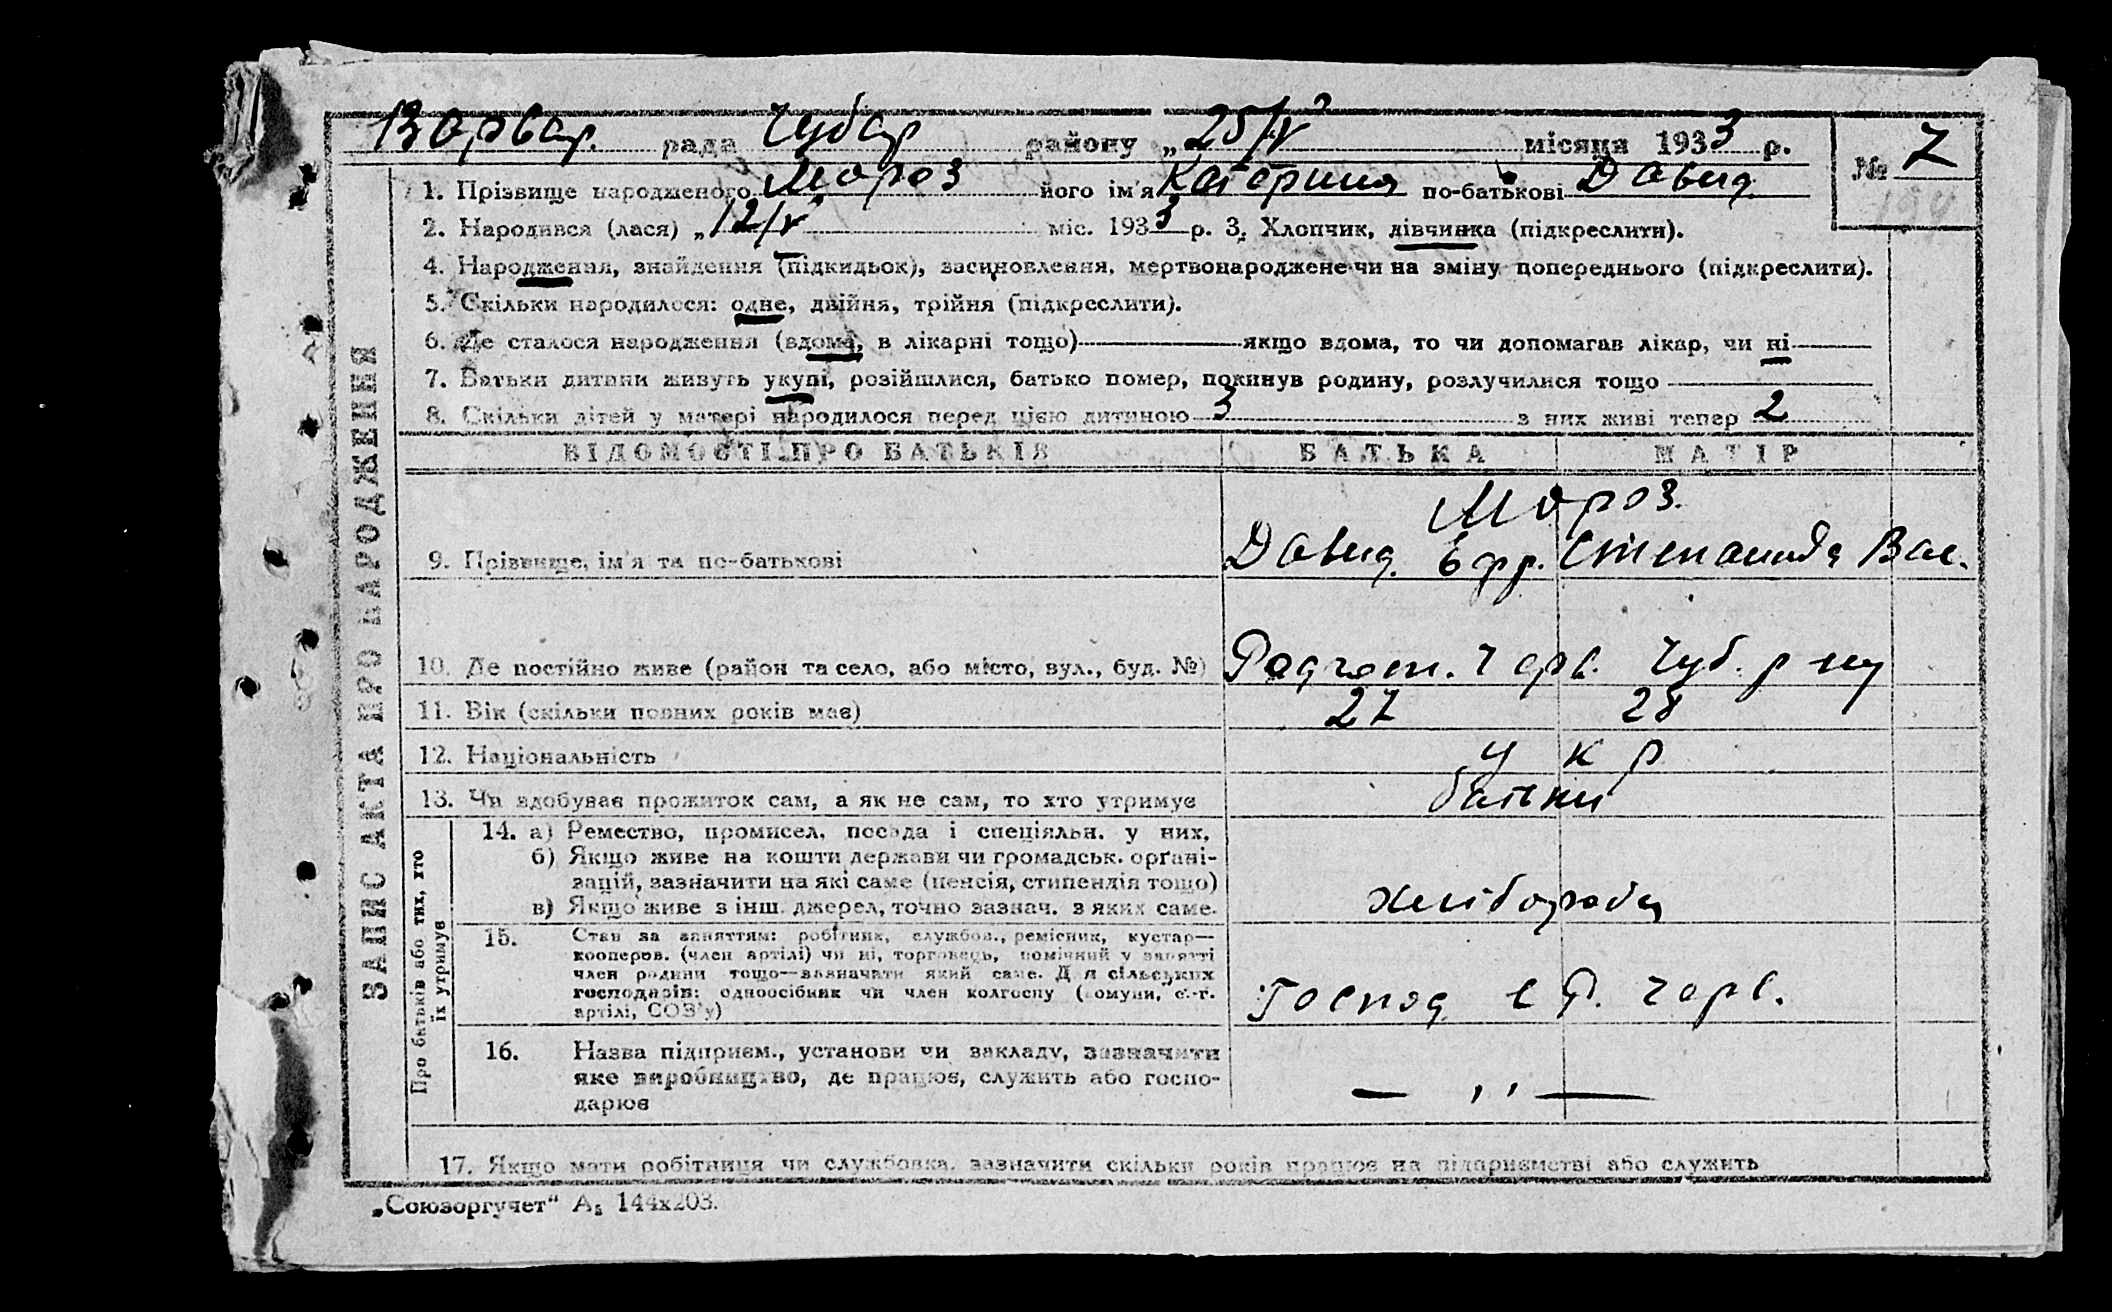 Варвар. рада Чубар району „25/V місяця 1933 р.
№ 7
194
1. Прізвище народженого Мороз його ім'я Катерина по-батькові Давид.
2. Народився (лася) „12/V міс. 1933 р. 3. Хлопчик, дівчинка (підкреслити).
4. Народження, знайдення (підкидьок), засиновлення, мертвонароджене чи на зміну попереднього (підкреслити).
5. Скільки народилося: одне, двійня, трійня (підкреслити).
6. Де сталося народження (вдома, в лікарні тощо) якщо вдома, то чи допомагав лікар, чи ні
7. Батьки дитини живуть укупі, розійшлися, батько помер, покинув родину, розлучилися тощо
8. Скільки дітей у матері народилося перед цією дитиною 3 з них живі тепер 2
ЗАПИС АКТА ПРО НАРОДЖЕННЯ
ВІДОМОСТІ ПРО БАТЬКІВ БАТЬКА МАТІР
Мороз.
9. Прізвище, ім'я та по-батькові Давид. Єфр. Степанида Вас.
10. Де постійно живе (район та село, або місто, вул., буд. №) Радгосп. Черв. Чуб. р-ну
11. Вік (скільки повних років має) 27 28
12. Національність укр
13. Чи здобуває прожиток сам, а як не сам, то хто утримує батьки
Про батьків або тих, хто
їх утримує
14. а) Ремество, промисел, посада і спеціяльн. у них,
б) Якщо живе на кошти держави чи громадськ. орґані-
зацій, зазначити на які саме (пенсія, стипендія тощо)
в) Якщо живе з інш. джерел, точно зазнач. з яких саме.
хлібороби
15. Стан за заняттям: робітник, службов., ремісник, кустар—
кооперов. (член артілі) чи ні, торговець, помічний у занятті
член родини тощо—зазначати який саме. Для сільських
господарів: одноосібник чи член колгоспу (комуни, с.-г.
артілі, СОЗ'у)
Господ с Р. Черв.
16. Назва підприєм., установи чи закладу, зазначити
яке виробництво, де працює, служить або госпо-
дарює
— ,, —
17. Якщо мати робітниця чи службовка, зазначити скільки років працює на підприємстві або служить
„Союзоргучет“ А₅ 144x203.